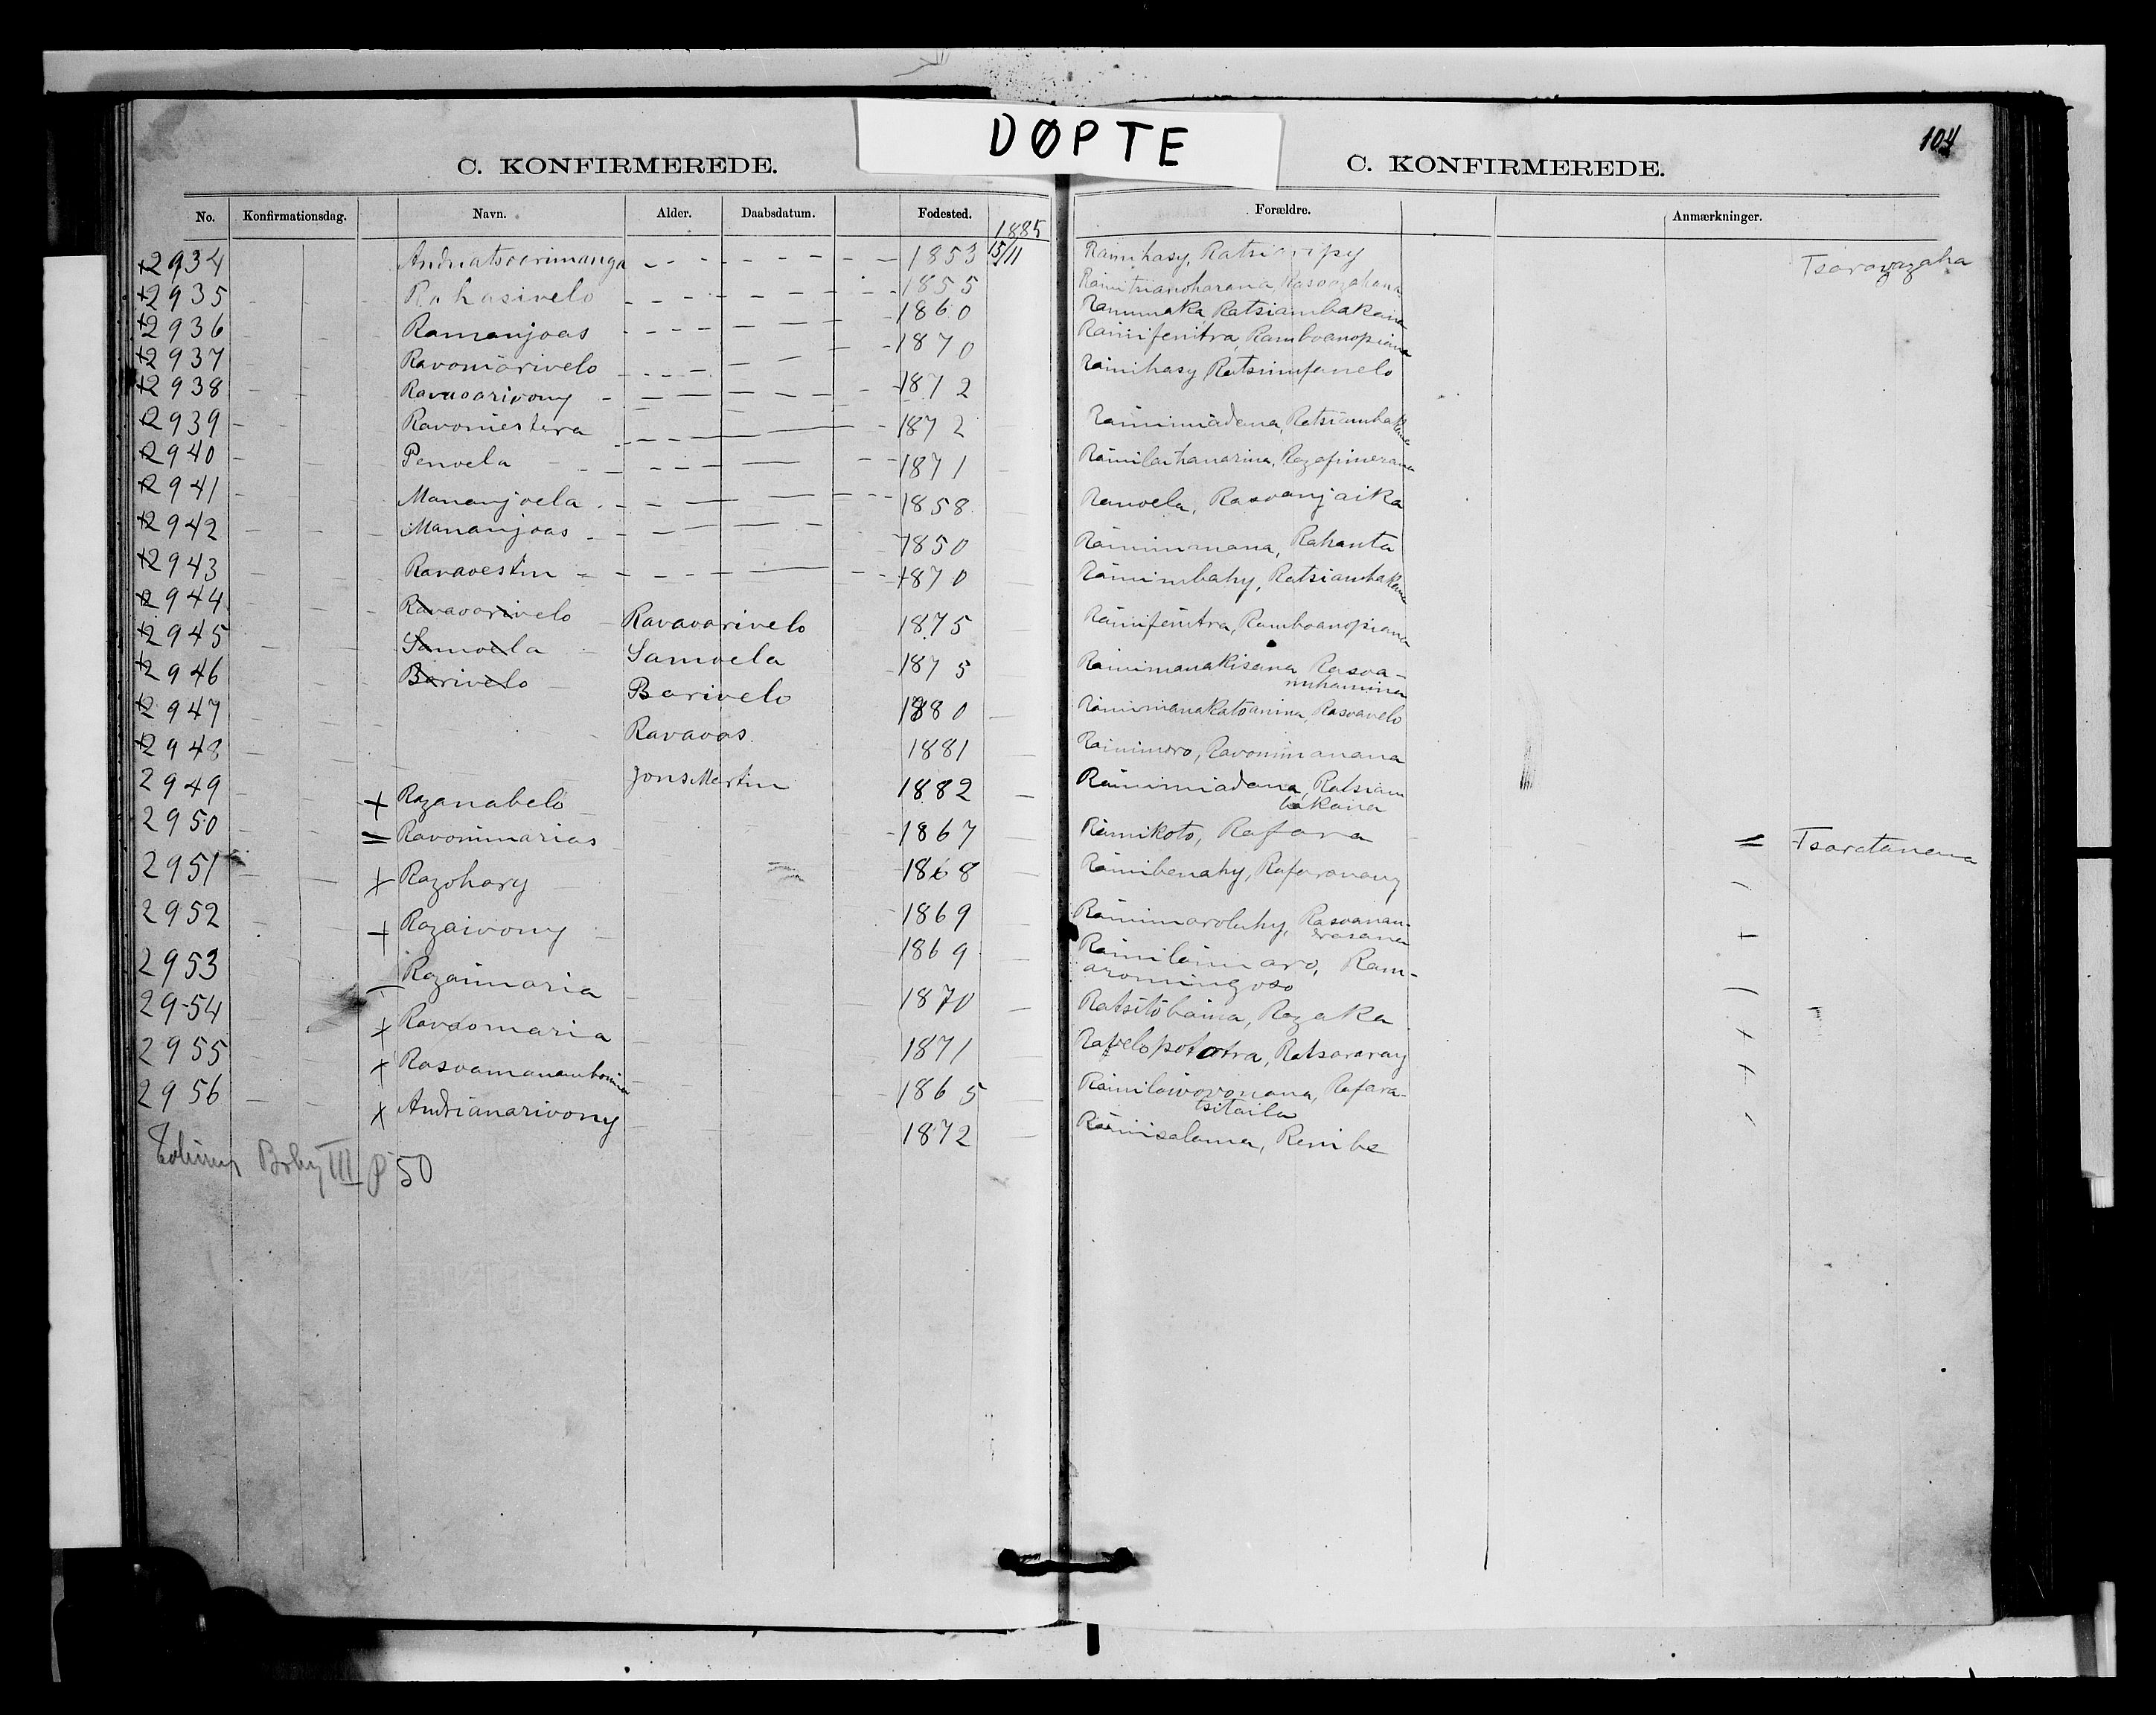 DØPTE
104
C. KONFIRMEREDE.
C. KONFIRMEREDE.
No. Konfirmationsdag. Navn. Alder. Daabsdatum. Fodested. 1885
Forældre. Anmærkninger.
+2934 Andriatsoarimanga 1853 15/11 Rainihasy, Ratsiaripy Tsaravazaha
+2935 Rahasivelo 1855
+2936 Ramanjoas 1860 Ratsiambakaina
+2937 Ravomarivelo 1870 Rainifenitra, Ramboanopiana
+2938 Ravaoarivony 1872 Rainihasy, Ratsimifanelo
+2939 Ravoniestera 1872 Rainimiadana, Ratsiambakaina
+2940 Penoela 1871 Rainilaihanarina, Razafimerana
+2941 Mananjoela 1858 Ranoela, Rasoanjaika
+2942 Mananjoas 1850 Rainimanana, Rahanta
+2943 Ravaoestin 1870 Rainimbahy, Ratsiambakaina
+2944 Ravaoarivelo Ravavoarivelo 1875 Rainifenitra, Ramboanopiana
+2945 Samoela Samoela 1875 Rainimanakisana Rasoa-
+2946 Barivelo Barivelo 1880 Rasoavelo
+2947 Ravavoas 1881 Rainimoro, Ravonimanana
+2948 Jons Martin 1882 Rainimiadana, Ratsiam
bakaina
2949 + Razanabelo 1867 Rainikoto, Rafara = Tsaratanana
2950 = Ravonimarias 1868 Rainibenahy, Rafaravavy
2951 + Razohary 1869 Rainimaroluhy, Rasoanan-
drasana
2952 + Razaivony 1869 Rainilaimaro, Ram-
aromingoso
2953 Razaimaria 1870 Ratsitobaina, Razaka
29-54 + Ravaomaria 1871 Ravelopototra, Ratsaravavy
2955 + Rasoamanambonina 1865 Rainilaivovonana, Rafara-
tsitaila
2956 + Andrianarivony 1872 Rainisalama, Renibe
Boky III p 50